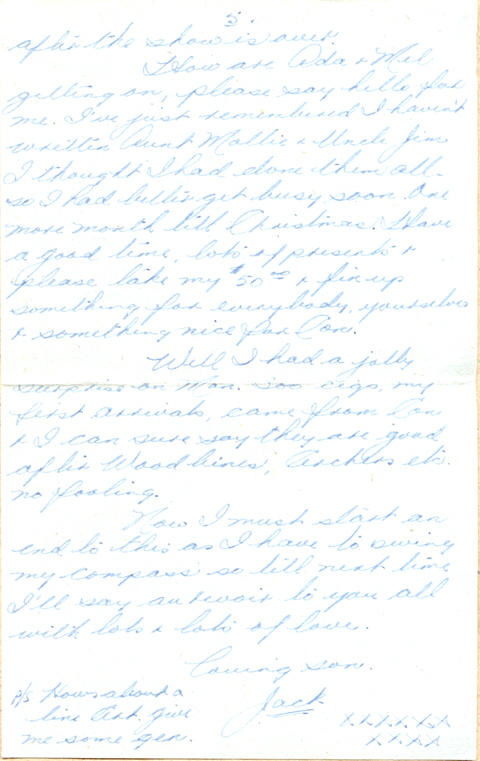 5.
after the show is over.
How are Ada & Mel
getting on, please say hello for
me. I've just remembered I haven't
written Aunt Mollie & Uncle Jim
I thought I had done them all -
so I had better get busy soon. One
more month till Christmas. Have
a good time, lots of presents &
please take my $50.00 & fix up
something for everybody, yourselves
& something nice for Con.
Well I had a jolly
surprise on Mon. 300 cigs, my
first arrivals, came from Con
& I can sure say they are good
after Woodbines, Archers etc.
no fooling.
Now I must start an
end to this as I have to swing
my compass so till next time
I'll say au revoir to you all
with lots & lots of love.
Loving son.
Jack
P/S Hows about a
line Art. give
me some gen.
X.X.X.X.X.X
X.X.X.X